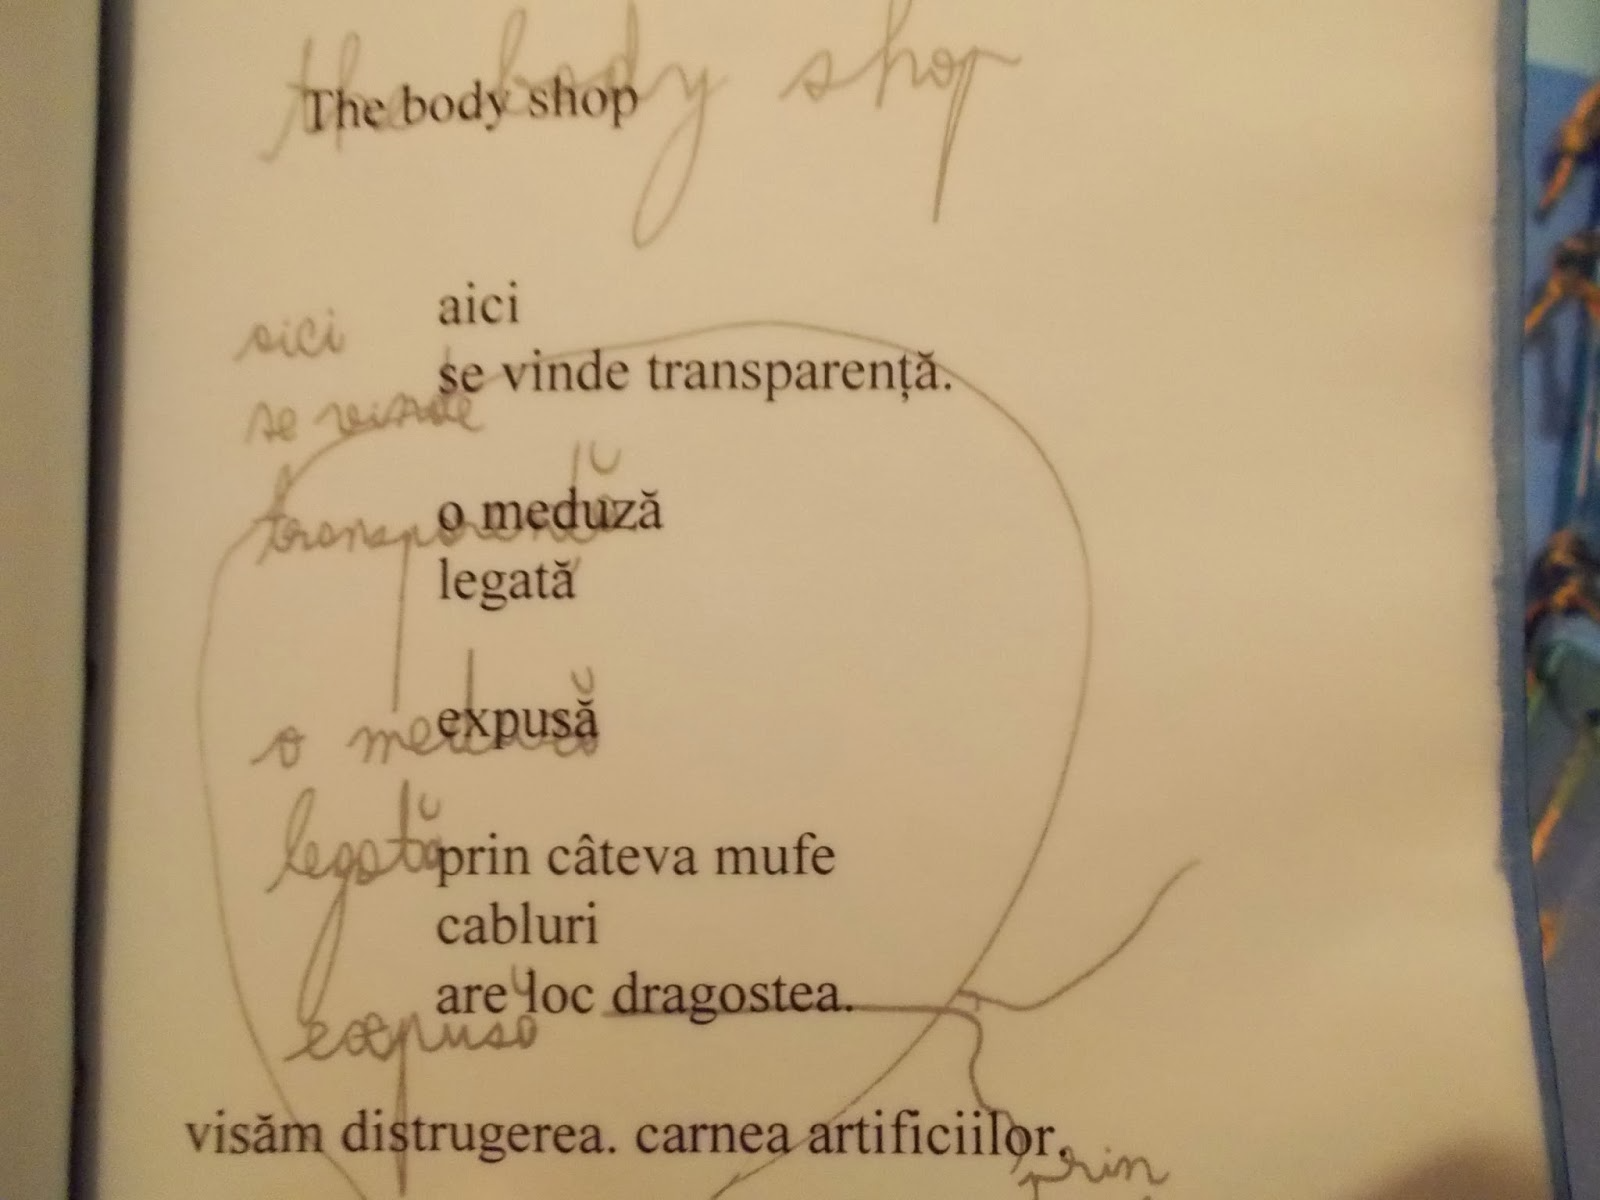 the body shop
The body shop
aici
aici
se vinde transparență.
se vinde
o meduză
transparență
legată
expusă
o meduză
legată
prin câteva mufe
cabluri
are loc dragostea.
expusă
visăm distrugerea. carnea artificiilor.
prin